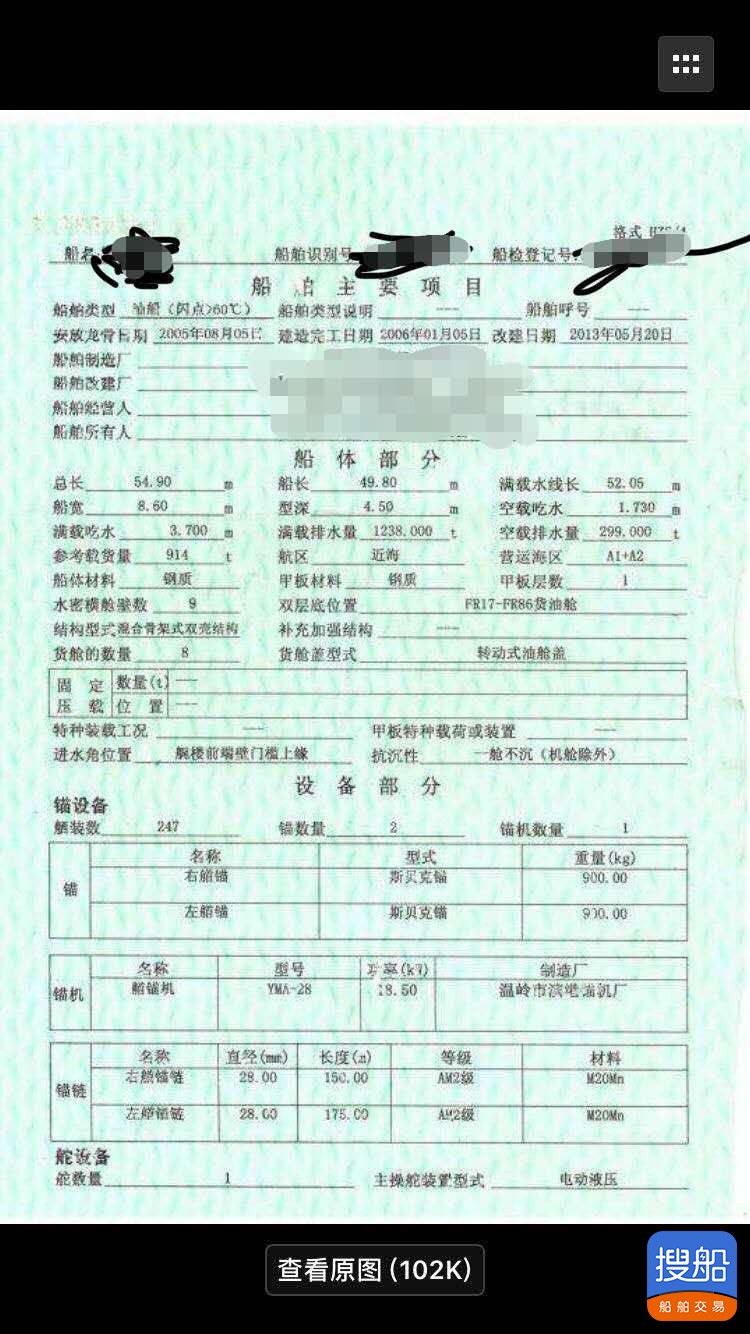 格式
船名 船舶识别号 船检登记号
船舶主要项目
船舶类型 油船（闪点>60℃） 船舶类型说明 --- 船舶呼号 ---
安放龙骨日期 2005年08月05日 建造完工日期 2006年01月05日 改建日期 2013年05月20日
船舶制造厂
船舶改建厂
船舶经营人
船舶所有人
船体部分
总长 54.90 m 船长 49.80 m 满载水线长 52.05 m
船宽 8.60 m 型深 4.50 m 空载吃水 1.730 m
满载吃水 3.700 m 满载排水量 1238.000 t 空载排水量 299.000 t
参考载货量 914 t 航区 近海 营运海区 A1+A2
船体材料 钢质 甲板材料 钢质 甲板层数 1
水密横舱壁数 9 双层底位置 FR17-FR86货油舱
结构型式 混合骨架式双壳结构 补充加强结构 ---
货舱的数量 8 货舱盖型式 转动式油舱盖
固定 数量(t) ---
压载 位置 ---
特种装载工况 --- 甲板特种载荷或装置 ---
进水角位置 艉楼前端壁门槛上缘 抗沉性 一舱不沉（机舱除外）
设备部分
锚设备
舾装数 247 锚数量 2 锚机数量 1
锚
名称 型式 重量(kg)
右艏锚 斯贝克锚 900.00
左艏锚 斯贝克锚 900.00
锚机
名称 型号 功率(kW) 制造厂
艏锚机 YMA-28 18.50 温岭市 机厂
锚链
名称 直径(mm) 长度(m) 等级 材料
右艏锚链 28.00 150.00 AM2级 M20Mn
左艏锚链 28.00 175.00 AM2级 M20Mn
舵设备
舵数量 1 主操舵装置型式 电动液压
查看原图 (102K)
搜船
船舶交易